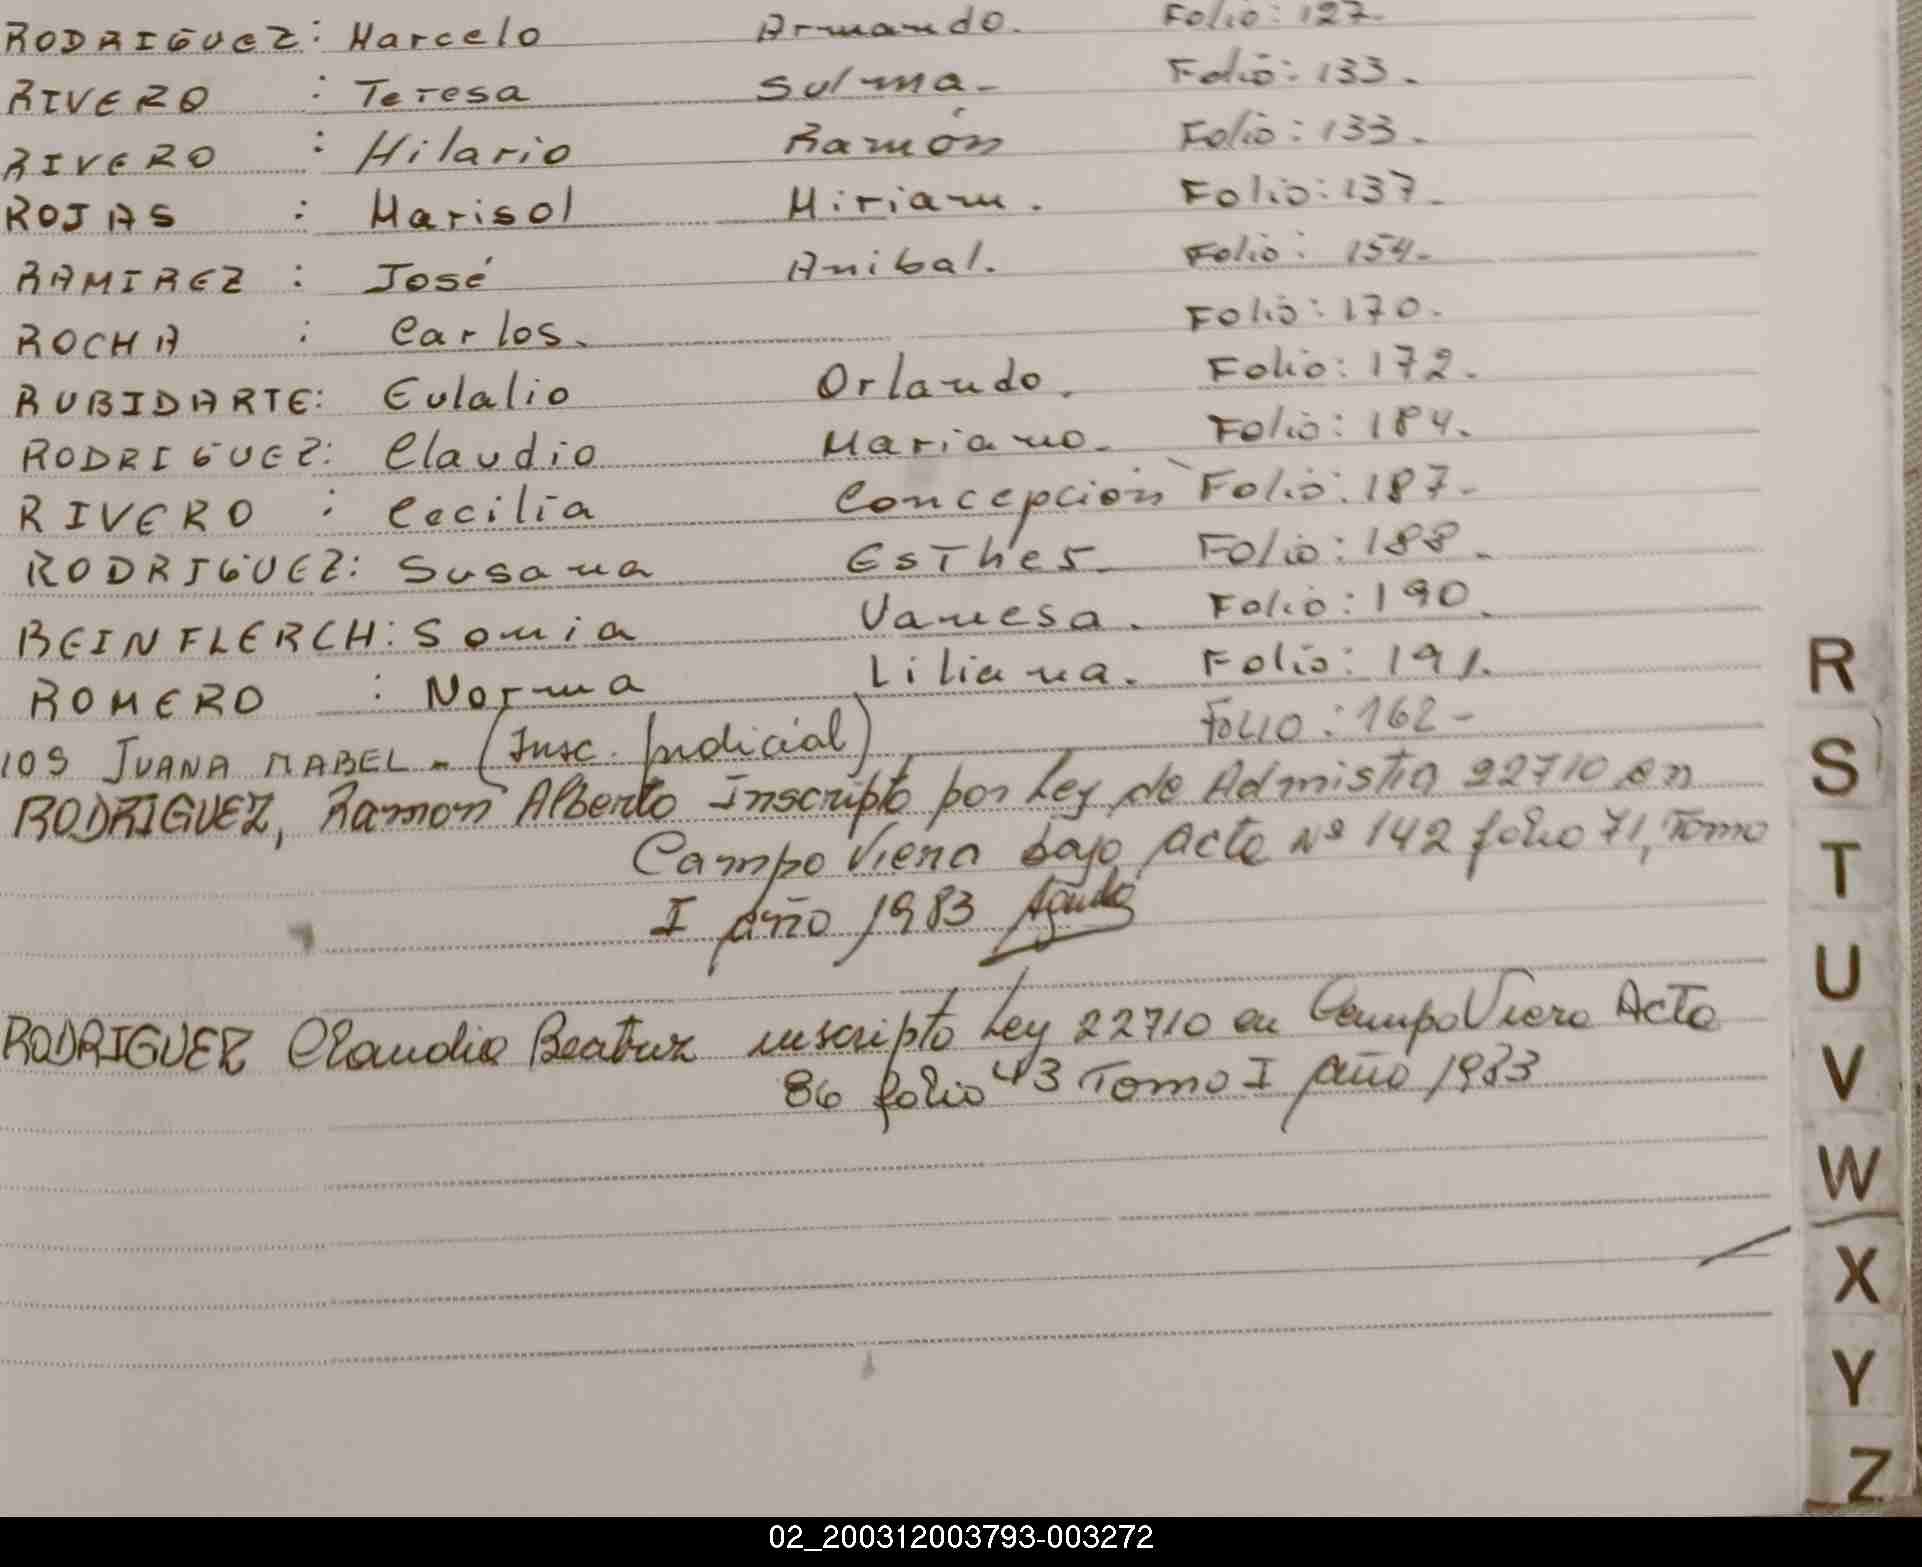 RODRIGUEZ: Marcelo Armando. Folio: 127-
RIVERO : Teresa Sulma- Folio: 133.
RIVERO : Hilario Ramón Folio: 133.
ROJAS : Marisol Miriam. Folio: 137.
RAMIREZ : José Anibal. Folio: 154.
ROCHA : Carlos. Folio: 170.
RUBIDARTE: Eulalio Orlando. Folio: 172.
RODRIGUEZ: Claudio Mariano. Folio: 184.
RIVERO : Cecilia Concepción Folio: 187-
RODRIGUEZ: Susana Esther. Folio: 188.
BEINFLERCH: Sonia Vanesa. Folio: 190.
ROMERO : Norma Liliana. Folio: 191.
IOS JUANA MABEL - (Insc. Judicial) FOLIO: 162-
RODRIGUEZ, Ramon Alberto Inscripto por Ley de Admistia 22710 en
Campo Viera bajo Acta Nº 142 folio 71, Tomo
I año 1983
RODRIGUEZ Claudia Beatriz inscripto Ley 22710 en Campo Viera Acta
86 folio 43 Tomo I año 1983
R
S
T
U
V
W
X
Y
Z
02_200312003793-003272